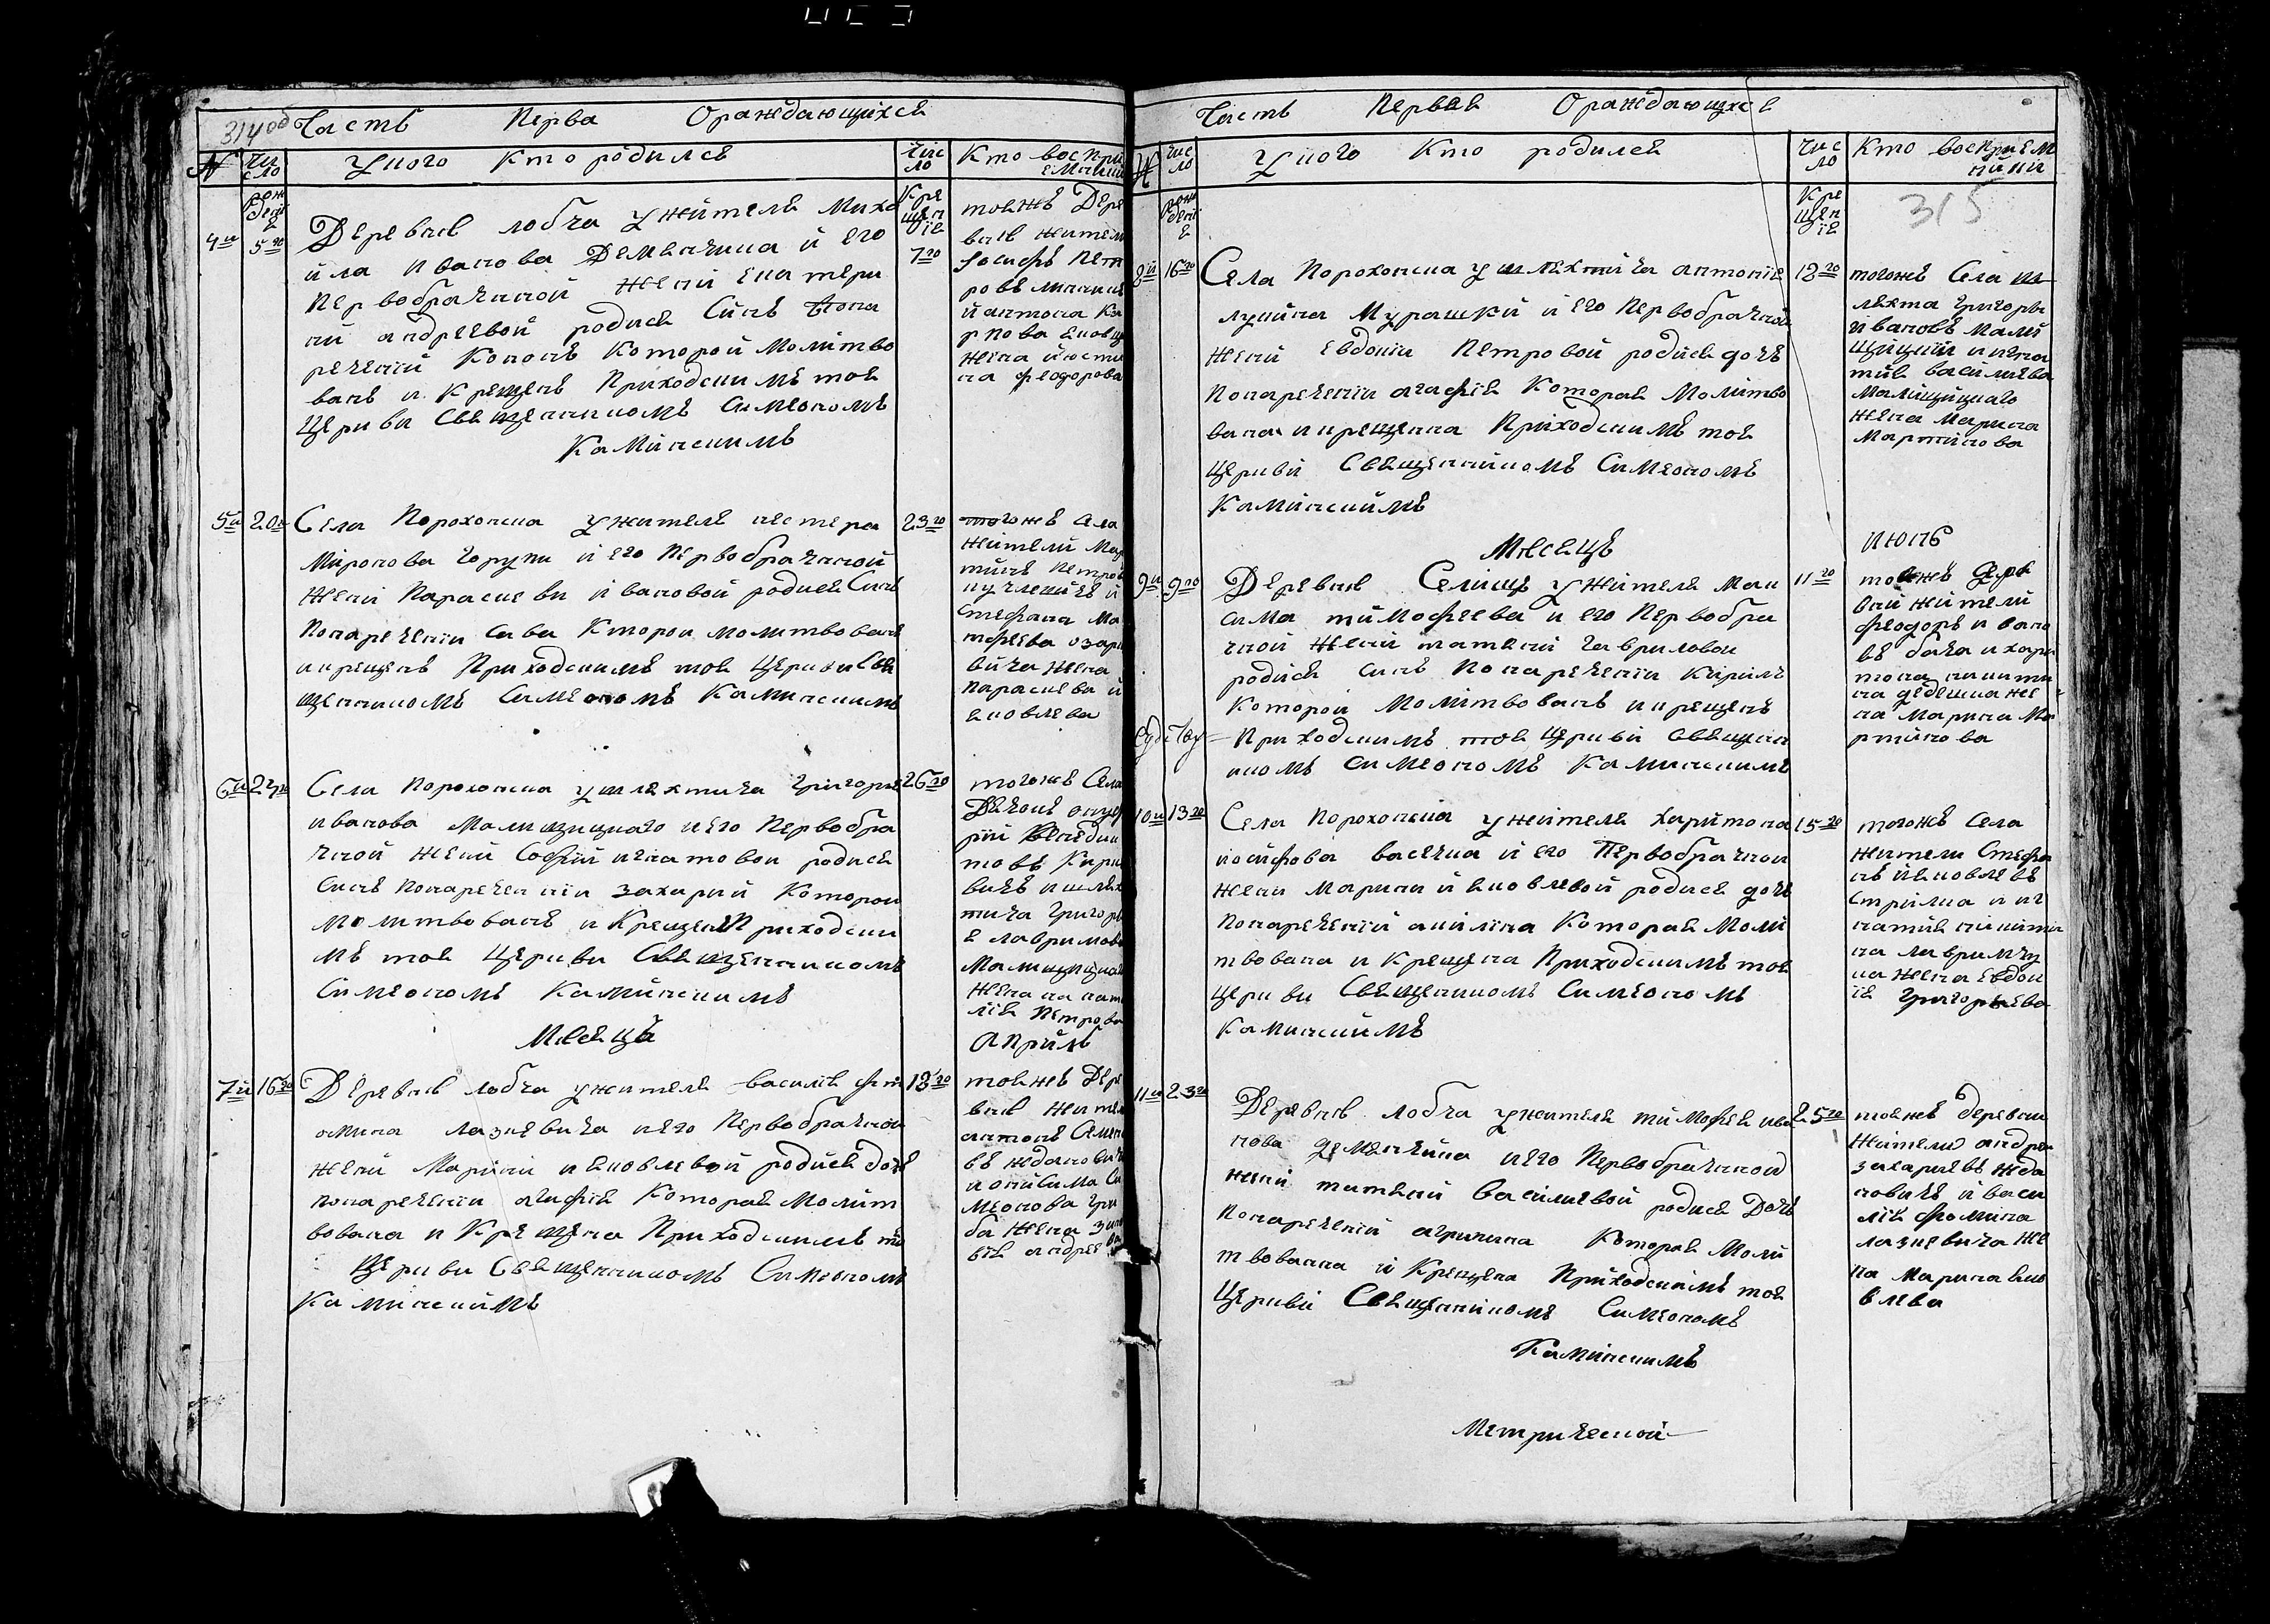 314 об
Часть Перва Ораждающихсѧ
№
Чи
сло
У кого Кто родилсѧ
Чис
ло
Кто воспри
емники
рож
дені
ѧ
Кре
щен
іѧ
4й
5го
Деревнѣ лобча ужителѧ Миха
йла иванова Демѧнчика и его
Первобрачной жены Екатери
ни андреевой родисѧ Синъ Нона
реченій Кононъ Которой Молитво
ванъ и Крещенъ Приходскимъ тоѧ
Церкви Свѧщенникомъ Симеономъ
Каминскимъ
7го
тоѧжъ Дере
внѣ жител
Іосифъ Пет
ровъ
и антона Ка
рпова Ековц
жена іюсти
на феодорова
5й
20го
Села Порохонска ужителѧ нестера
Миронова Горупи и его Первобрачной
жени Параскеви ивановой родисѧ Синъ
Понареченіи Сава Кторои молитвованъ
и крещенъ Приходскимъ тоѧ Церкви Свѧ
щенникомъ Симеономъ Каминскимъ
23го
тогожъ Села
жители Мар
тинъ Петров
и
Стефана Ма
тфеева озари
вича жена
Параскева и
ѧковлева
6й
24го
Села Порохонска ушлѧхтича Григориѧ
иванова Малищицкаго и его Первобра
чной жени Софіи игнатовои родисѧ
Синъ понареченіи захарий Которои
молитвованъ и Крещенъ Приходски
мъ тоѧ Церкви Свѧщенникомъ
Симеономъ Каминскимъ
26го
тогожъ Села
Дѧчокъ
рій Венедик
товъ Кири
вичъ и шлѧх
тича Григориѧ
Малищицкаг
жена ната
ліѧ Петрова
Месѧцъ
Априль
7й
16го
Деревнѣ лобча ужителѧ василіѧ фи
омина лазкевича и его Первобрачной
жени Марини ѧковлевой родисѧ дочь
понареченіи агафіѧ Котораѧ Молит
вована и Крещена Приходскимъ то
Церкви Свѧщенникомъ Симеономъ
Каминскимъ
18го
тоѧжъ Дере
внѣ жите
антонъ Семе
въ жданович
и онисима Си
меонова Гри
ба жена зин
віѧ андрее ва
Часть Перваѧ Ораждающихсѧ
№
Чис
ло
У кого Кто родилсѧ
Чис
ло
Кто восприем
ники
рож
дені
ѧ
Кре
щен
іѧ
315
8й
16го
Села Порохонска ушлѧхтича антоніѧ
лукина Мурашки и его Первобрачной
жени Евдокіи Петровой родисѧ дочь
Понареченіи агафіѧ Котораѧ Молитво
вана и крещена Приходскимъ тоѧ
церкви Свѧщенникомъ Симеономъ
Каминскимъ
18го
тогожъ Села шл
лѧхта Григорѣ
ивановъ Мали
щицкій и игна
тиѧ василиева
Малищицкаго
жена Марина
Мартинова
Месѧцъ
июнь
9й
9го
Деревнѣ Селищъ ужителѧ Мак
сима тимофеева и его Первобра
чной жени татѧни Гавриловои
родисѧ синъ Понареченіи Кирилъ
Которои Молитвованъ и крещенъ
Приходскимъ тоѧ Церкви Свѧщен
икомъ Симеономъ Каминскимъ
11го
тоѧжъ дере
вни жители
феодоръ ивано
въ бача и хари
тона никити
на дедешка же
на Марина Ма
ртинова
10й
13го
Села Порохонска ужителѧ харитона
иосифова васечка и его Первобрачнои
жени марини ѧковлевой родисѧ дочь
Понареченій акилина Котораѧ Моли
твована и Крещена Приходскимъ тоѧ
Церкви Свѧщенникомъ Симеономъ
Каминскимъ
15го
тогожъ Села
жители Стефа
нъ иѧковлевъ
Стрилка и иг
натиѧ никити
на лаврим чу
ка жена Евдок
іѧ Григорѣева
11й
23го
Деревнѣ лобча ужителѧ тимофеѧ ива
нова демѧнчика и его Первобрачной
жени татѧни василиевой родисѧ Дочь
Понареченій агрипина Котораѧ Моли
твованна и Крещена Приходскимъ тоѧ
Церкви Свѧщенникомъ Симеономъ
Каминскимъ
25го
тоѧжъ деревни
жители андреи
захариевъ жда
новичъ и васи
ліѧ фомина
лазкевича же
на Марина ѧко
влева
Метрической